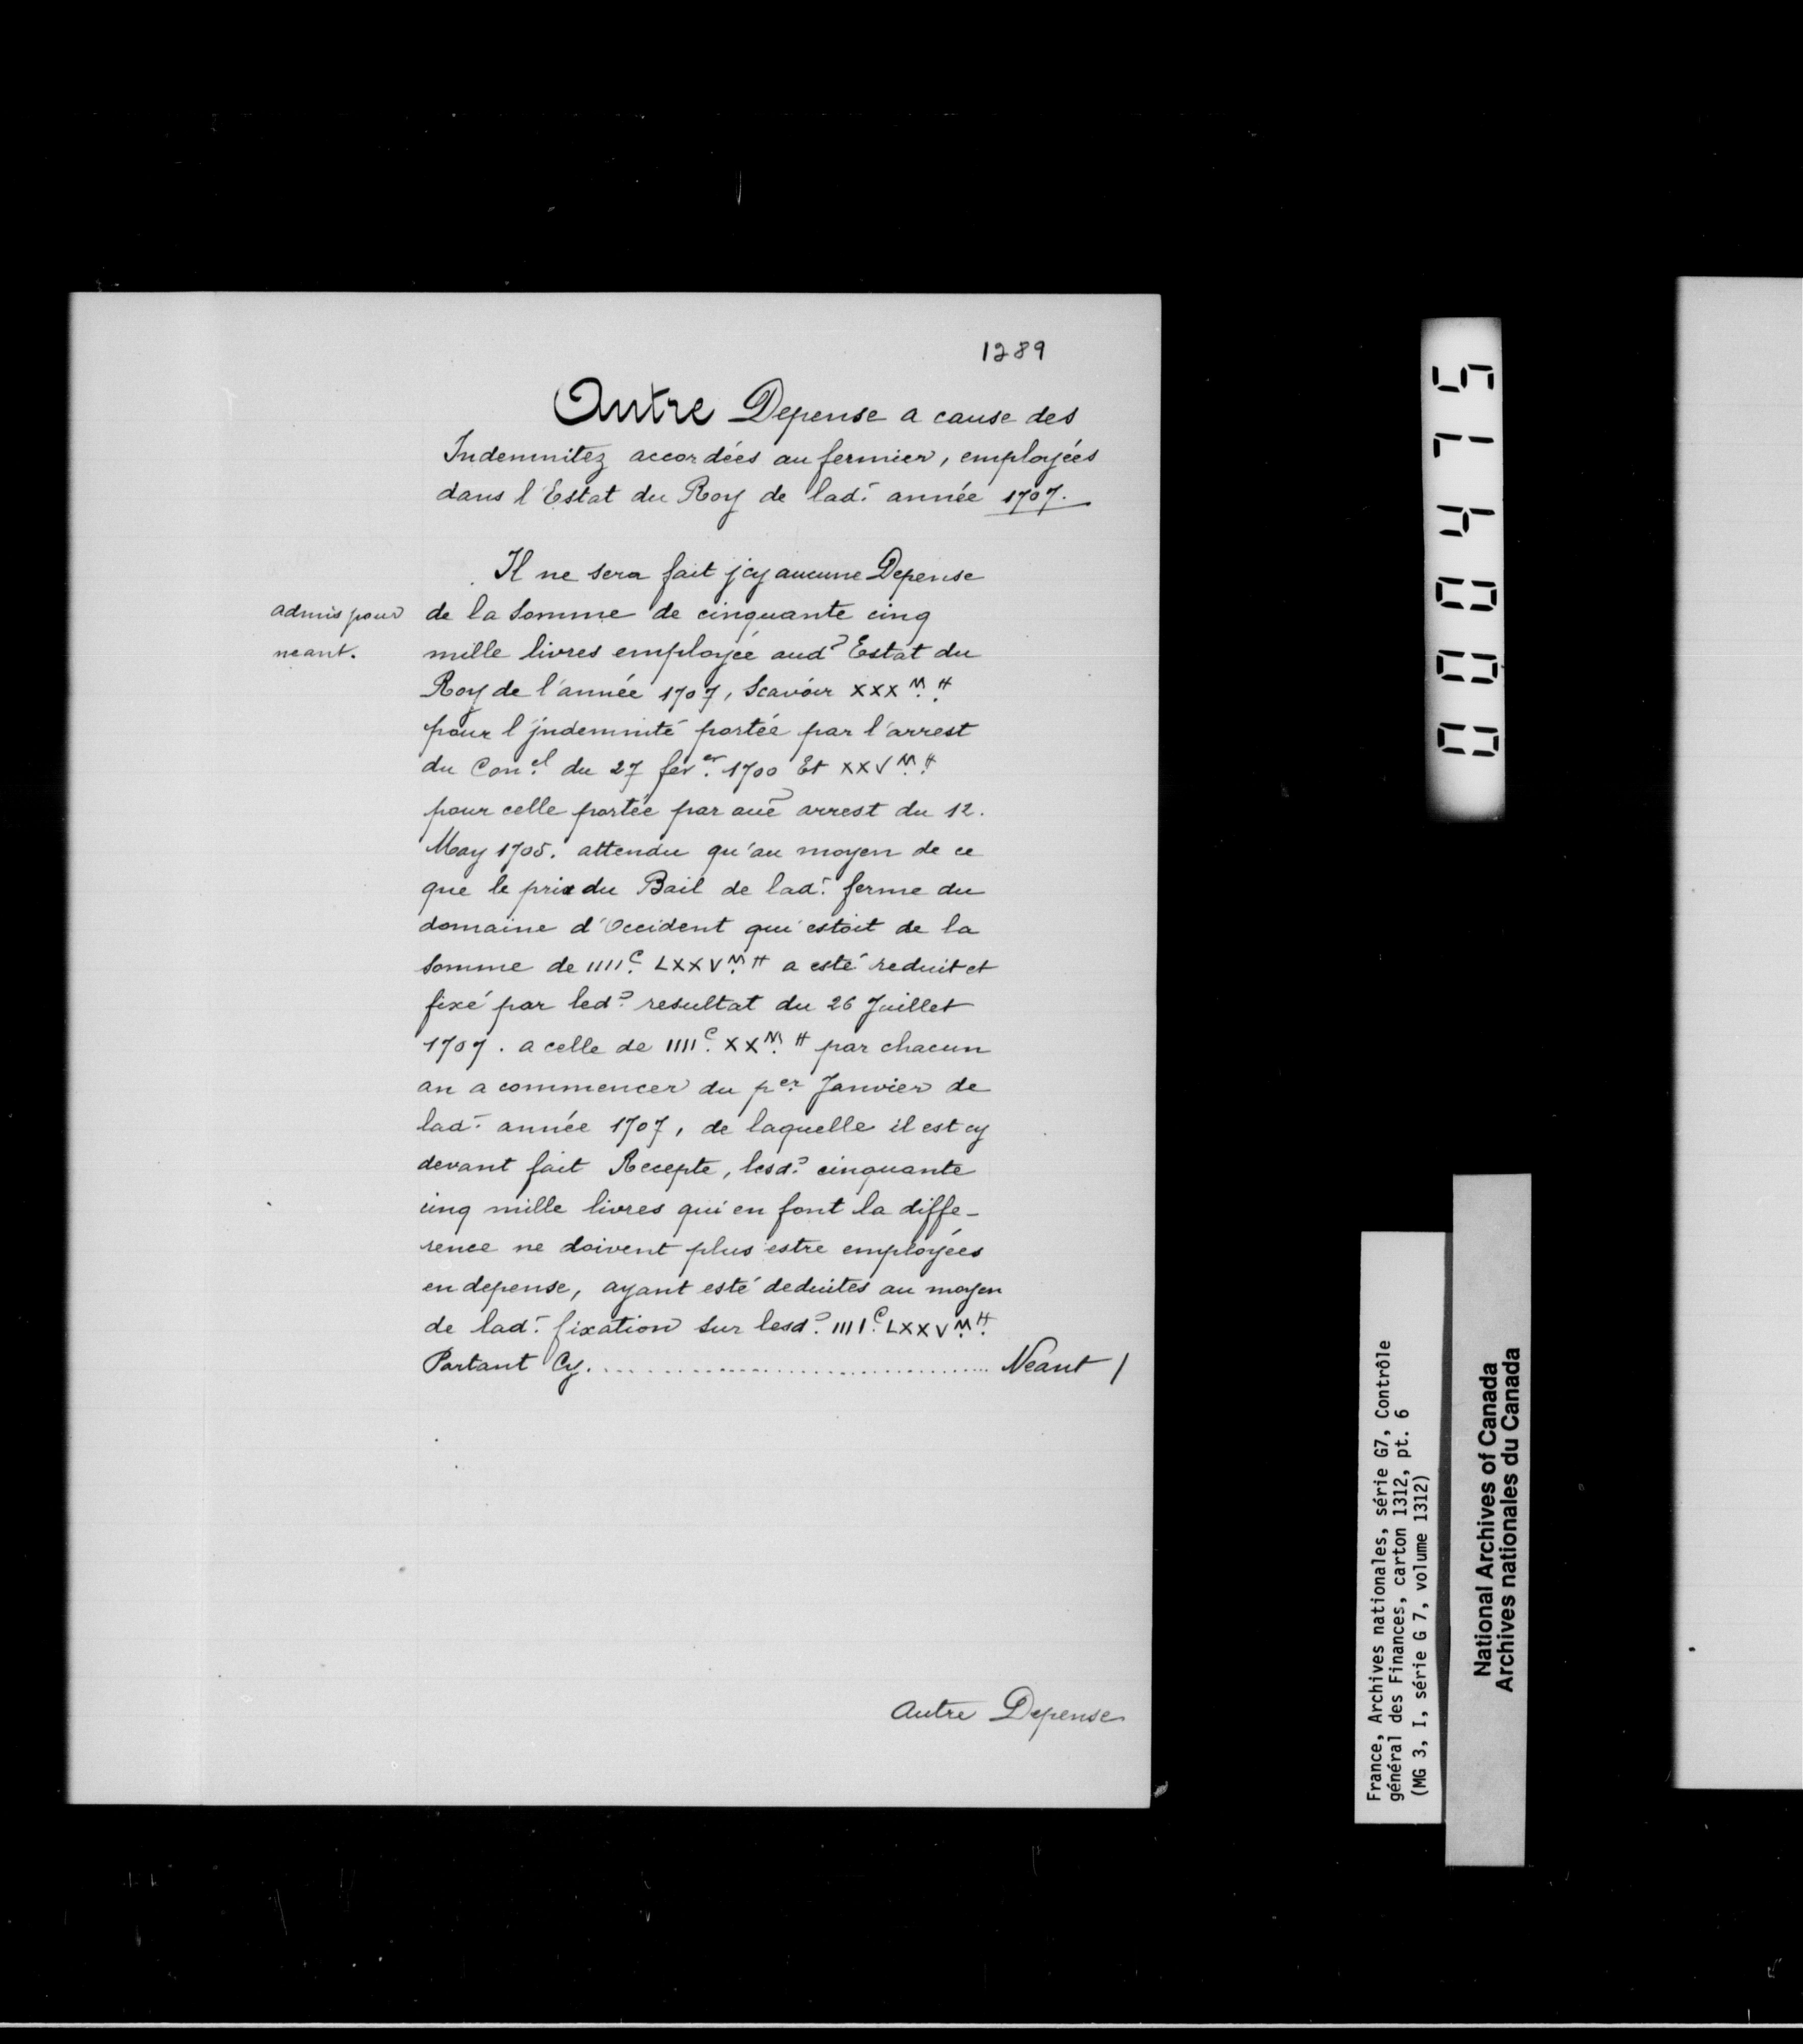 1289
Autre Depense a cause des
Indemnitez accordées au fermier, employées
dans l'Estat du Roy de lad. année 1707.
Il ne sera fait jcy aucune Depense
admis pour
neant.
de la Somme de cinquante cinq
mille livres employée aud? Estat du
Roy de l'année 1707, Scavoir XXX M. ₶
pour l'jndemnité portée par l'arrest
du Con.el du 27 fév.er 1700 Et XXV M. ₶
pour celle portée par auẽ arrest du 12.
May 1705. attendu qu'au moyen de ce
que le prix du Bail de lad. ferme du
domaine d'Occident qui estoit de la
Somme de IIII C. LXXV M. ₶ a esté reduit et
fixé par led? resultat du 26 Juillet
1707. a celle de IIII C. XX M. ₶ par chacun
an a commencer du p.er Janvier de
lad. année 1707, de laquelle il est cy
devant fait Recepte, lesd? cinquante
cinq mille livres qui en font la diffe-
rence ne doivent plus estre employées
en depense, ayant esté deduites au moyen
de lad. fixation sur lesd? IIII C. LXXV M. ₶
Partant Cy. .......................................... Neant /
Autre Depense
0004715
France, Archives nationales, série G7, Contrôle
général des Finances, carton 1312, pt. 6
(MG 3, I, série G 7, volume 1312)
National Archives of Canada
Archives nationales du Canada